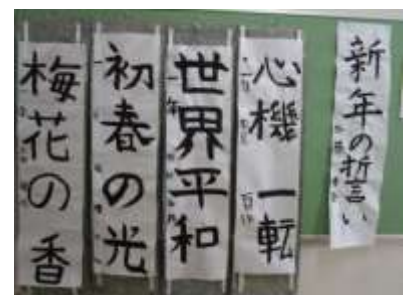 新年の誓い
心機一転
世界平和
初春の光
梅花の香